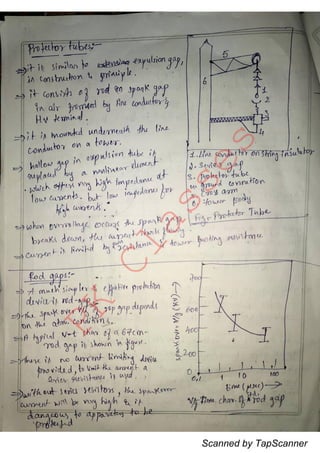 Protector tubes:-
⇒ it is similar to expulsion gap,
in construction & principle.
⇒ it consists of rod or spark gap
in air formed by line conductor &
HV terminal.
⇒ it is mounted underneath the line
conductor on a tower.
⇒ hallow gap in expulsion tube is
replaced by a nonlinear element
which offers very high impedance at
low currents. but low impedance for
high currents.
⇒ when overvoltage occurs the spark gap
breaks down, the current
⇒ current is limited by resistance & tower footing resistance
5
6
1
2
3
4
1. line conductor on string insulator
2. series gap
3. protector tube
4. ground connection
5. cross arm
6. tower body
Fig: Protector Tube
Classes
Rod gaps:-
⇒ A much simpler & effective protection
device is rod-gap
⇒ the spark over V/g of rod gap depends
on the atm conditions.
A typical V-t char of a 67cm-
rod gap is shown in figure.
⇒ there is no current limiting device
provided, to limit the current a
series resistance is used.
⇒ without series resistors, the sparkover
current will be very high & it
dangerous to apparatus to be
protected
sparkover V/g (KV)
700
600
400
200
0
0.1
1
10
100
time (μsec) →
V/g Time char. of a rod gap
Scanned by TapScanner